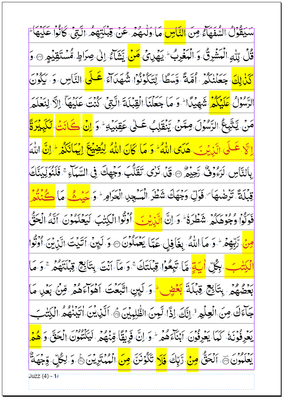 سَيَقُولُ السُّفَهَاءُ مِنَ النَّاسِ مَا وَلّٰىهُمْ عَنْ قِبْلَتِهِمُ الَّتِیْ كَانُوْا عَلَيْهَا ؕ
قُلْ لِّلّٰهِ الْمَشْرِقُ وَ الْمَغْرِبُ ؕ يَهْدِیْ مَنْ يَّشَآءُ اِلٰى صِرَاطٍ مُّسْتَقِيْمٍ ۝ وَ
كَذٰلِكَ جَعَلْنٰكُمْ اُمَّةً وَّسَطًا لِّتَكُوْنُوْا شُهَدَآءَ عَلَى النَّاسِ وَ يَكُوْنَ
الرَّسُوْلُ عَلَيْكُمْ شَهِيْدًا ؕ وَ مَا جَعَلْنَا الْقِبْلَةَ الَّتِیْ كُنْتَ عَلَيْهَاۤ اِلَّا لِنَعْلَمَ
مَنْ يَّتَّبِعُ الرَّسُوْلَ مِمَّنْ يَّنْقَلِبُ عَلٰى عَقِبَيْهِ ؕ وَ اِنْ كَانَتْ لَكَبِيْرَةً
اِلَّا عَلَى الَّذِيْنَ هَدَى اللّٰهُ ؕ وَ مَا كَانَ اللّٰهُ لِيُضِيْعَ اِيْمَانَكُمْ ؕ اِنَّ اللّٰهَ
بِالنَّاسِ لَرَءُوْفٌ رَّحِيْمٌ ۝ قَدْ نَرٰى تَقَلُّبَ وَجْهِكَ فِی السَّمَآءِ ۚ فَلَنُوَلِّيَنَّكَ
قِبْلَةً تَرْضٰىهَا ۪ فَوَلِّ وَجْهَكَ شَطْرَ الْمَسْجِدِ الْحَرَامِ ؕ وَ حَيْثُ مَا كُنْتُمْ
فَوَلُّوْا وُجُوْهَكُمْ شَطْرَهٗ ؕ وَ اِنَّ الَّذِيْنَ اُوْتُوا الْكِتٰبَ لَيَعْلَمُوْنَ اَنَّهُ الْحَقُّ
مِنْ رَّبِّهِمْ ؕ وَ مَا اللّٰهُ بِغَافِلٍ عَمَّا يَعْمَلُوْنَ ۝ وَ لَئِنْ اَتَيْتَ الَّذِيْنَ اُوْتُوا
الْكِتٰبَ بِكُلِّ اٰيَةٍ مَّا تَبِعُوْا قِبْلَتَكَ ۚ وَ مَاۤ اَنْتَ بِتَابِعٍ قِبْلَتَهُمْ ۚ وَ مَا
بَعْضُهُمْ بِتَابِعٍ قِبْلَةَ بَعْضٍ ؕ وَ لَئِنِ اتَّبَعْتَ اَهْوَآءَهُمْ مِّنْۢ بَعْدِ مَا
جَآءَكَ مِنَ الْعِلْمِ ۙ اِنَّكَ اِذًا لَّمِنَ الظّٰلِمِيْنَ ۝ اَلَّذِيْنَ اٰتَيْنٰهُمُ الْكِتٰبَ
يَعْرِفُوْنَهٗ كَمَا يَعْرِفُوْنَ اَبْنَآءَهُمْ ؕ وَ اِنَّ فَرِيْقًا مِّنْهُمْ لَيَكْتُمُوْنَ الْحَقَّ وَ هُمْ
يَعْلَمُوْنَ ۝ اَلْحَقُّ مِنْ رَّبِّكَ فَلَا تَكُوْنَنَّ مِنَ الْمُمْتَرِيْنَ ۝ وَ لِكُلٍّ وِّجْهَةٌ